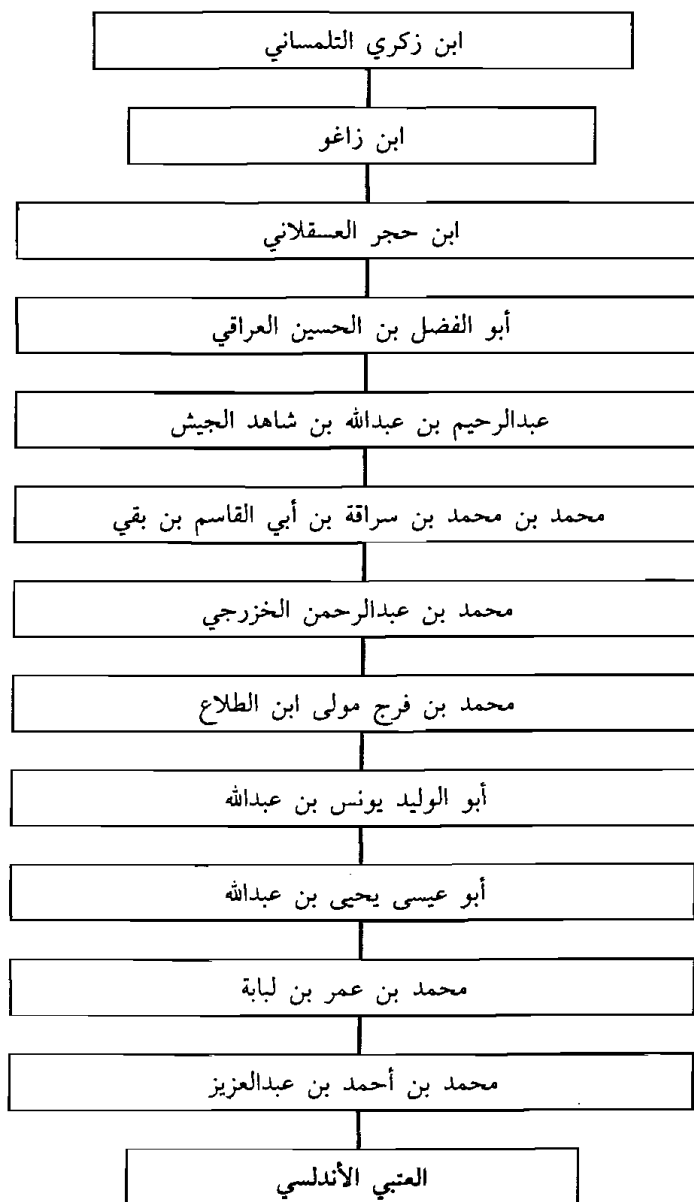 ابن زكري التلمساني
ابن زاغو
ابن حجر العسقلاني
أبو الفضل بن الحسين العراقي
عبدالرحيم بن عبدالله بن شاهد الجيش
محمد بن محمد بن سراقة بن أبي القاسم بن بقي
محمد بن عبدالرحمن الخزرجي
محمد بن فرج مولى ابن الطلاع
أبو الوليد يونس بن عبدالله
أبو عيسى يحيى بن عبدالله
محمد بن عمر بن لبابة
محمد بن أحمد بن عبدالعزيز
العتبي الأندلسي